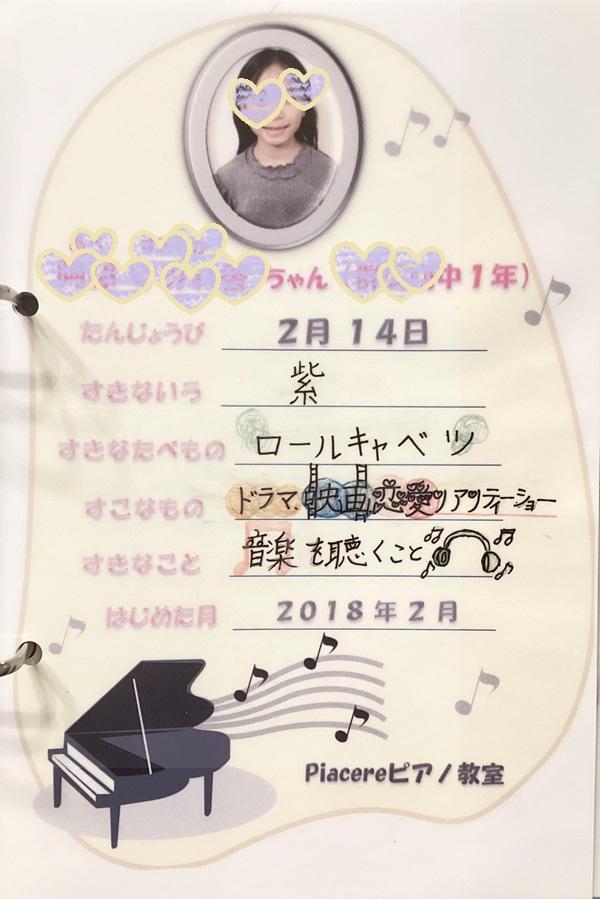 ちゃん（中1年）
たんじょうび 2月14日
すきないろ 紫
すきなたべもの ロールキャベツ
すこなもの ドラマ、映画 恋愛リアリティーショー
すきなこと 音楽を聴くこと
はじめた月 2018年2月
Piacereピアノ教室